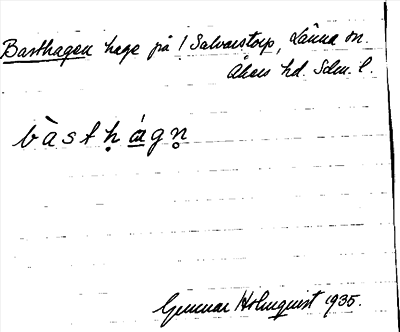 Basthagen hage på 1 Salvarstorp, Länna sn.
Åkers hd. Sdm. l.
bàstḥágṇ
Gunnar Holmquist 1935.